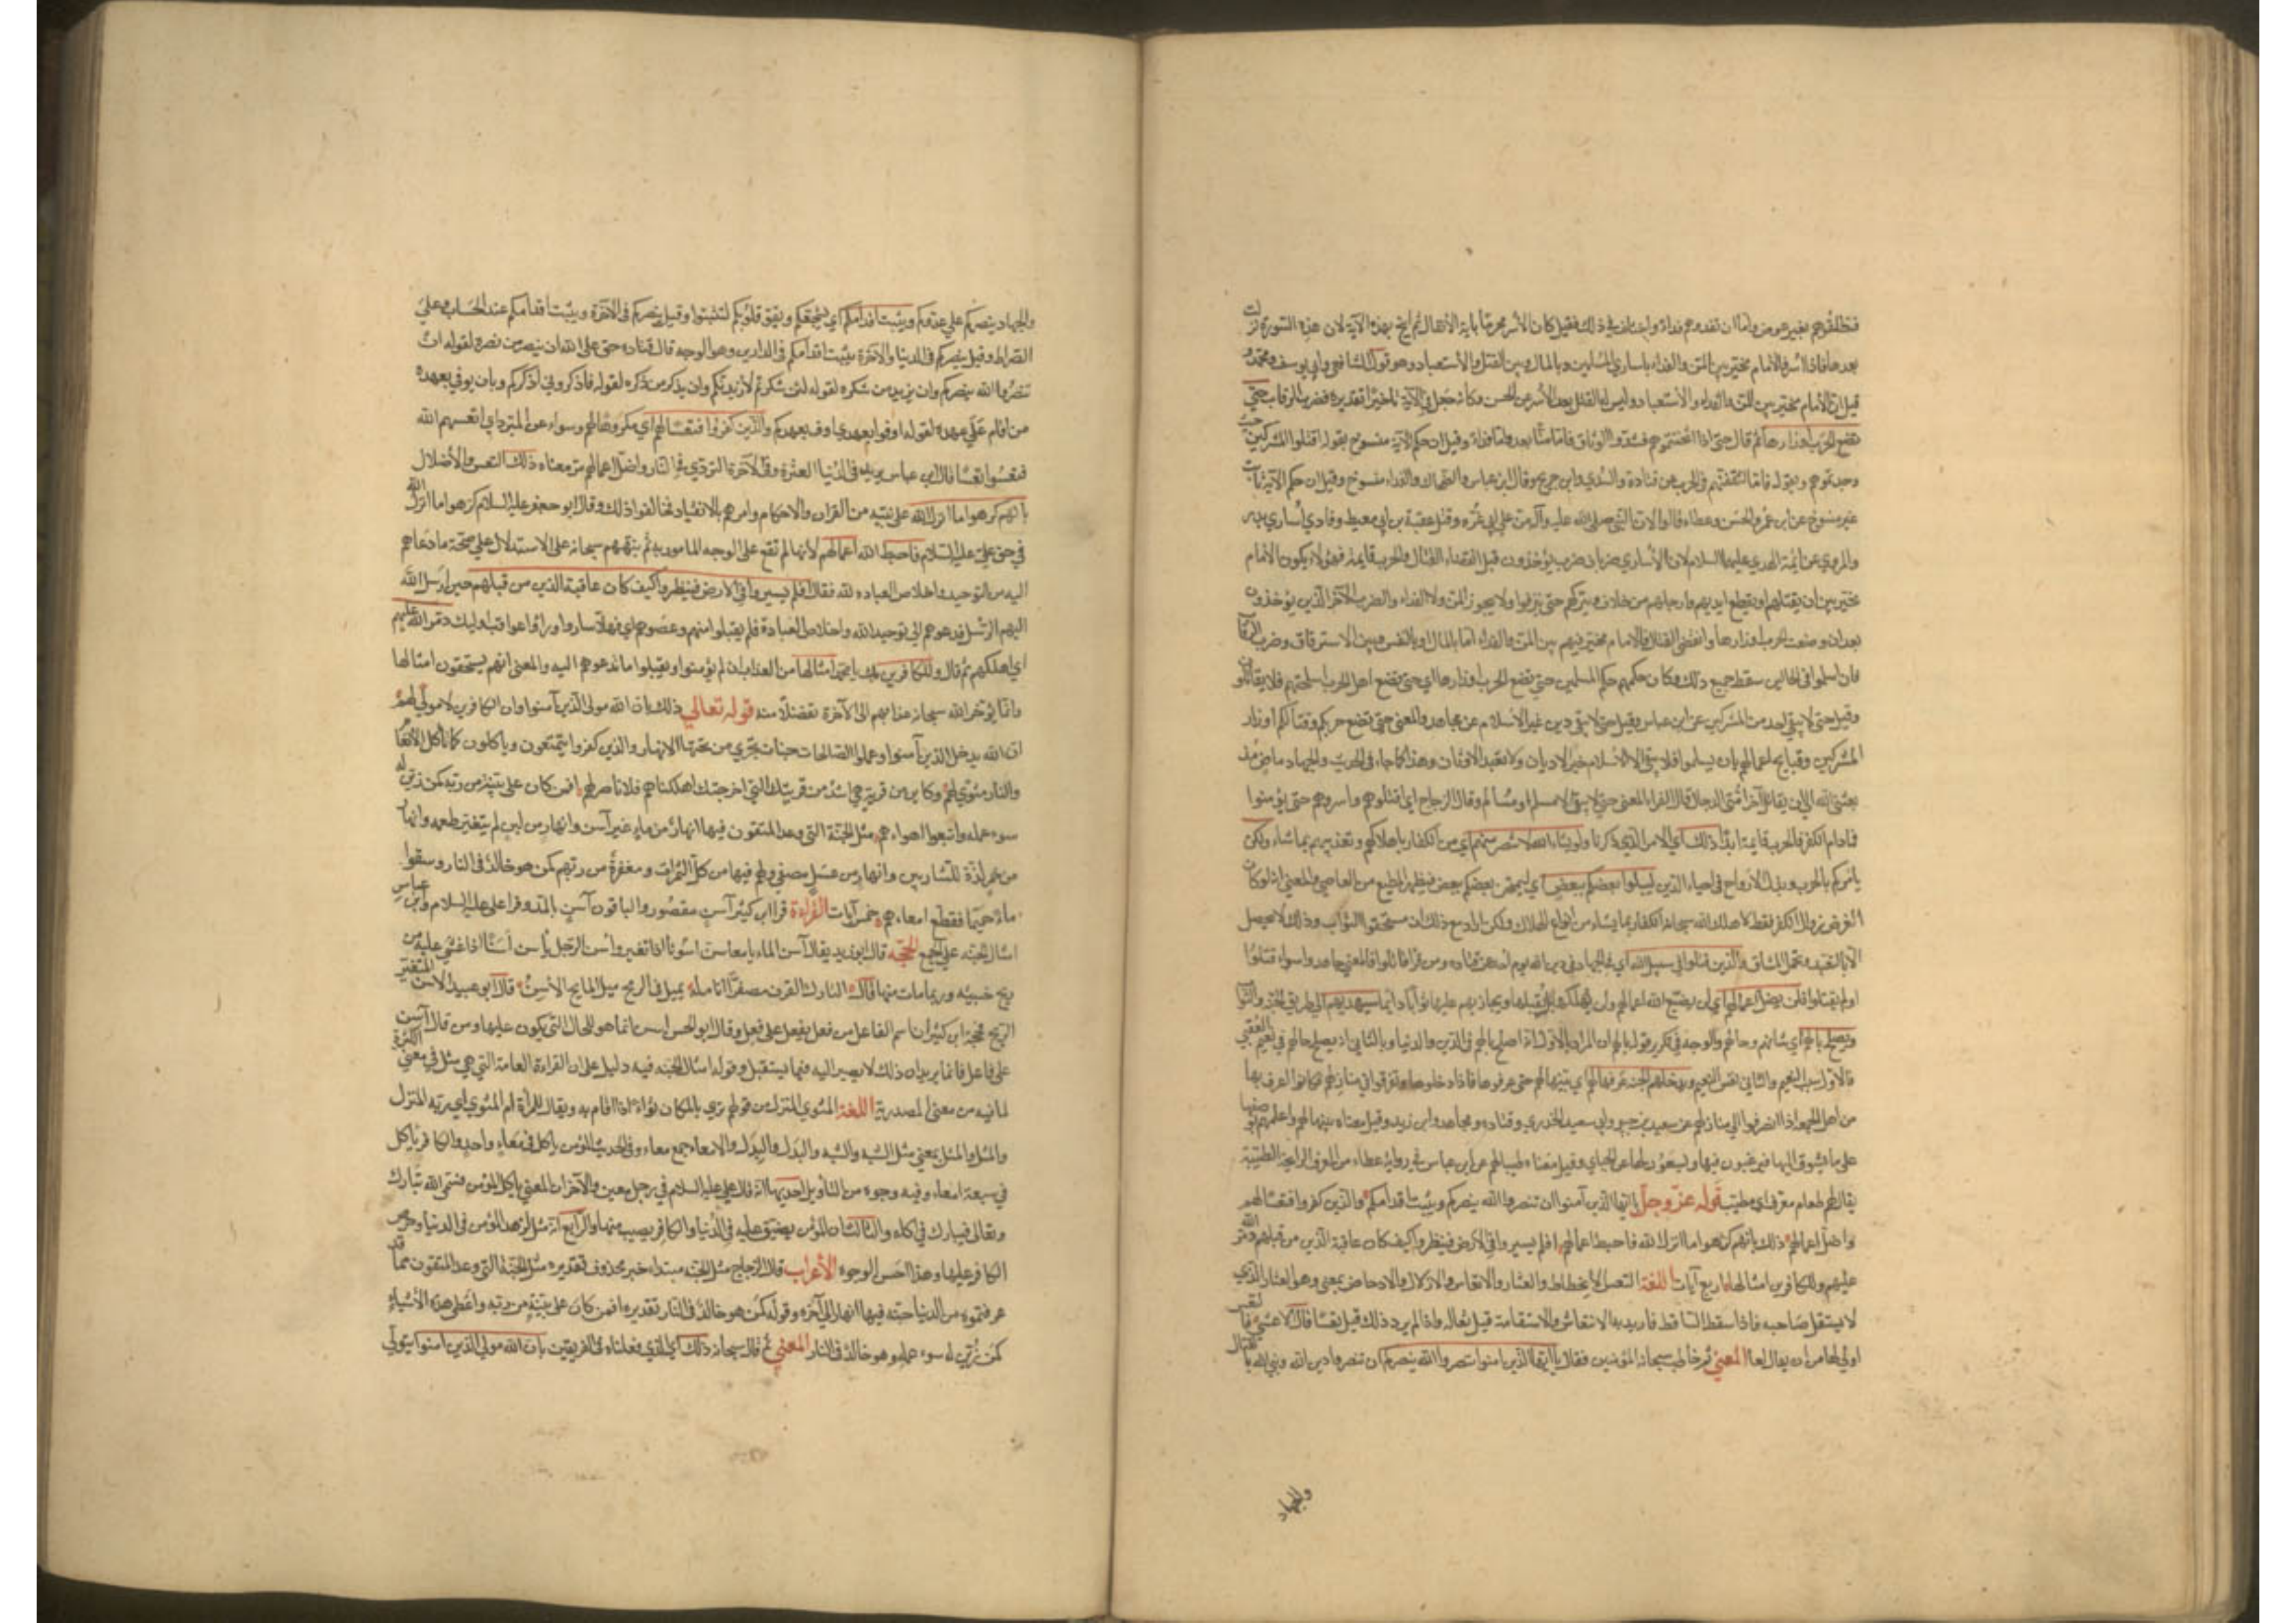 فتطلقوهم بغير عوض واما ان تفدوهم فداء واختلف في ذلك فقيل كان الأسر محرما بآية الأنفال ثم ابيح بهذه الآية لان هذه السورة نزلت
بعدها فاذا اسروا فالامام مخير بين المن والفداء باساري المسلمين وبالمال وبين القتل والأستعباد وهو قول الشافعي وابي يوسف ومحمد
قيل ان الأمام مخير بين المن والفداء والأستعباد وليس له القتل بعد الأسر عن الحسن وكانه جعل في الآية تقديره فضرب الرقاب حتي
تضع الحرب اوزارها ثم قال حتى اذا اثخنتموهم فشدوا الوثاق فاما منا بعد واما فداء وقيل ان حكم الآية منسوخ بقوله اقتلوا المشركين حيث
وجدتموهم وبقوله فاما تثقفنهم في الحرب عن قتادة والسدي وابن جريج وقال ابن عباس والضحاك والفداء منسوخ وقيل ان حكم الآية ثابت
غير منسوخ عن ابن عمر والحسن وعطاء قالوا لان النبي صلى الله عليه وآله من علي ابي غرة وقتل عقبة بن ابي معيط وفادي أساري بدر
والمروي عن ائمة الهدي عليهم السلام لان الأساري ضربان ضرب يؤخذون قبل انقضاء القتال والحرب قايمة فهؤلاء يكون الأمام
مخير بين ان يقتلهم او يقطع ايديهم وارجلهم من خلاف ويتركهم حتى ينزفوا ولا يجوز المن ولا الفداء والضرب الآخر الذين يؤخذون
بعد ان وضعت الحرب اوزارها وانقضى القتال فالامام مخير فيهم بين المن والفداء اما بالمال او بالنفس وبين الاسترقاق وضرب الرقاب
فان اسلموا في الحالين سقط جميع ذلك وكان حكمهم حكم المسلمين حتى تضع الحرب اوزارها اي حتى تضع اهل الحرب اسلحتهم فلا يقاتلون
وقيل حتى لا يبقي احد من المشركين عن ابن عباس وقيل حتى لا يبقي دين غير الأسلام عن مجاهد والمعنى حتى تضع حربكم وقتالكم اوزار
المشركين وقبايح اعمالهم بان يسلموا فلا يبقى الا الأسلام خير الاديان ولا تعبد الاوثان وهذا كما جاء في الحديث والجهاد ماض مذ
بعثني الله الي ان يقاتل آخر امتي الدجال وقال الفراء المعنى حتى لا يبقى الا مسلم او مسالم وقال الزجاج اي اقتلوهم واسروهم حتى يؤمنوا
فما دام الكفر فالحرب قايمة ابدا ذلك اي الامر الذي ذكرنا ولو يشاء الله لانتصر منهم اي من الكفار باهلاكهم وتعذيبهم بما شاء ولكن
يأمركم بالحرب وبذل الأرواح في احياء الدين ليبلوا بعضكم ببعض اي ليمتحن بعضكم ببعض فيظهر المطيع من العاصي والمعنى انه لو كان
الغرض زوال الكفر فقط لاهلك الله سبحانه الكفار بما يشاء من انواع الهلاك ولكن اراد مع ذلك ان يستحقوا الثواب وذلك لا يحصل
الا بالتعبد وتحمل المشاق والذين قتلوا في سبيل الله اي في الجهاد في دين الله يوم احد عن قتاده ومن قرا قاتلوا فالمعنى جاهدوا سواء قتلوا
او لم يقتلوا فلن يضل اعمالهم اي لن يضيع الله اعمالهم ولن يهلكها بل يقبلها ويجازيهم عليها ثوابا دائما سيهديهم الي طريق الجنة والثواب
ويصلح بالهم اي شانهم وحالهم والوجه في تكرير قوله بالهم ان المراد بالاول انه اصلح بالهم في الدين والدنيا وبالثاني انه يصلح حالهم في نعيم العقبي
فالاول سبب النعيم والثاني نفس النعيم ويدخلهم الجنة عرفها لهم اي بينها لهم حتى عرفوها فاذا دخلوها وتفرقوا في منازلهم فكانوا اعرف بها
من اهل الجمعة اذا انصرفوا الي منازلهم عن سعيد بن جبير وابي سعيد الخدري وقتاده ومجاهد وابن زيد وقيل معناه بينها لهم واعلمهم بوصفها
على ما يشوق اليها فيرغبون فيها ويسعون لها عن الجبائي وقيل معناه طيبها لهم عن ابن عباس في رواية عطاء من العرف الرايحة الطيبة
يقال طعام معرف اي مطيب قوله عز وجل يا ايها الذين آمنوا ان تنصروا الله ينصركم ويثبت اقدامكم والذين كفروا فتعسا لهم
واضل اعمالهم ذلك بانهم كرهوا ما انزل الله فاحبط اعمالهم افلم يسيروا في الارض فينظروا كيف كان عاقبة الذين من قبلهم دمر الله
عليهم وللكافرين امثالها اربع آيات اللغة التعس الأنحطاط والعثار والاتعاس والازلال والادحاض بمعنى وهو العثار الذي
لا يستقل صاحبه فاذا سقط الساقط فاريد به الانتعاش والاستقامة قيل لعاله واذا لم يرد ذلك قيل تعسا قال الاعشي فالتعس
اولي لها من ان يقال لعا المعني ثم خاطب سبحانه المؤمنين فقال يا ايها الذين امنوا تنصروا الله ينصركم ان تنصروا دين الله ونبي الله بالقتال
والجهاد
والجهاد ينصركم علي عدوكم ويثبت اقدامكم اي يشجعكم ويقوي قلوبكم لتثبتوا وقيل ينصركم في الآخرة ويثبت اقدامكم عند الحساب وعلي
الصراط وقيل ينصركم في الدنيا والآخرة ويثبت اقدامكم في الدارين وهو الوجه قال قتاده حق على الله ان ينصر من نصره لقوله ان
تنصروا الله ينصركم وان يزيد من شكره لقوله لئن شكرتم لأزيدنكم وان يذكر من ذكره لقوله فأذكروني أذكركم وبان يوفي بعهده
من اقام علي عهده لقوله اوفوا بعهدي اوف بعهدكم والذين كفروا فتعسا لهم اي مكروها لهم وسواء عن المبرد اي اتعسهم الله
فتعسوا تعسا قال ابن عباس يريد في الدنيا العثرة وفي الآخرة التردي في النار واضل اعمالهم مر معناه ذلك التعس والأضلال
بانهم كرهوا ما انزل الله على نبيه من القران والاحكام وامرهم بالانقياد فخالفوا ذلك وقال ابو جعفر عليه السلام كرهوا ما انزل الله
في حق علي عليه السلام فاحبط الله اعمالهم لأنها لم تقع على الوجه المامور به ثم نبههم سبحانه على الاستدلال علي صحة ما دعاهم
اليه من التوحيد واخلاص العباده لله فقال افلم يسيروا في الارض فينظروا كيف كان عاقبة الذين من قبلهم حين ارسل الله
اليهم الرسل فدعوهم الي توحيد الله واخلاص العبادة فلم يقبلوا منهم وعصوهم اي فهلا ساروا وراوا عواقب اوليك دمر الله عليهم
اي اهلكهم ثم قال وللكافرين بك يا محمد امثالها من العذاب ان لم يؤمنوا ويقبلوا ما تدعوهم اليه والمعنى انهم يستحقون امثالها
وانما يؤخر الله سبحانه عذابهم الى الآخرة تفضلا منه قوله تعالي ذلك بان الله مولى الذين آمنوا وان الكافرين لا مولي لهم
ان الله يدخل الذين آمنوا وعملوا الصالحات جنات تجري من تحتها الانهار والذين كفروا يتمتعون وياكلون كما تأكل الأنعام
والنار مثوي لهم وكاين من قرية هي اشد من قريتك التي اخرجتك اهلكناهم فلا ناصر لهم افمن كان على بينة من ربه كمن زين له
سوء عمله واتبعوا اهواءهم مثل الجنة التي وعد المتقون فيها انهار من ماء غير آسن وانهار من لبن لم يتغير طعمه وانهار
من خمر لذة للشاربين وانهار من عسل مصفي ولهم فيها من كل الثمرات ومغفرة من ربهم كمن هو خالد في النار وسقوا
ماء حميما فقطع امعاءهم خمس آيات القراءة قرا ابن كثير آسن مقصور والباقون آسن بالمد وقرا علي عليه السلام وابن عباس
امثال الجنة علي الجمع الحجة قال ابو زيد يقال آسن الماء ياسن اسونا اذا تغير واسن الرجل يأسن أسنا اذا غشي عليه من
ريح خبيثه وربما مات منها قال التارك القرن مصفرا انامله يميل في الرمح ميل المايح الأسن قال ابو عبيد الاسن المتغير
الريح فحجة ابن كثير ان اسم الفاعل من فعل يفعل على فعل وقال ابو الحسن اسن انما هو للحال التي يكون عليها ومن قال آسن
على فاعل فانما يريد ان ذلك لا يصير اليه فيما يستقبل وقوله امثال الجنه فيه دليل على ان القراءة العامة التي هي مثل في معنى الكثرة
لما فيه من معنى المصدرية اللغة المثوي المنزل من قولهم ثوي بالمكان ثواء اذا اقام به ويقال للمرأة ام المثوي اي ربة المنزل
والمثل والمثل بمعني مثل الشبه والشبه والبدل والبدل والامعاء جمع معاء وفي الحديث المؤمن يأكل في معاء واحد والكافر ياكل
في سبعة امعاء وفيه وجوه من التأويل احديها انه قال علي عليه السلام في رجل معين والآخر ان المعني ياكل المؤمن فيسمي الله تبارك
وتعالى فيبارك في اكله والثالث ان المؤمن يضيق عليه في الدنيا والكافر يصيب منها والرابع انه مثل لزهد المؤمن في الدنيا وحرص
الكافر عليها وهذا احسن الوجوه الأعراب قال الزجاج مثل الجنة مبتداء خبره محذوف تقديره مثل الجنة التي وعد المتقون مما قد
عرفتموه من الدنيا جنه فيها انهار الي آخره وقوله كمن هو خالد في النار تقديره افمن كان على بينة من ربه واعطى هذه الأشياء
كمن زين له سوء عمله وهو خالد في النار المعني ثم قال سبحانه ذلك اي الذي فعلناه في الفريقين بان الله مولي الذين امنوا يتولي